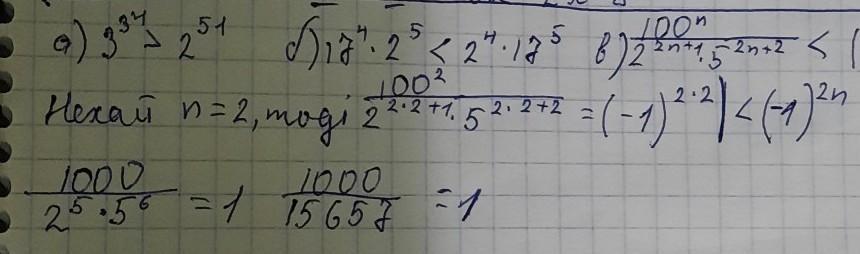 а) 3^34 > 2^51 б) 17^4 · 2^5 < 2^4 · 17^5 в) 100^n / 2^(2n+1) · 5^(2n+2) <
Нехай n=2, тоді 100^2 / 2^(2·2+1) · 5^(2·2+2) = (-1)^(2·2) | < (-1)^(2n)
1000 / 2^5 · 5^6 = 1 1000 / 15657 = 1